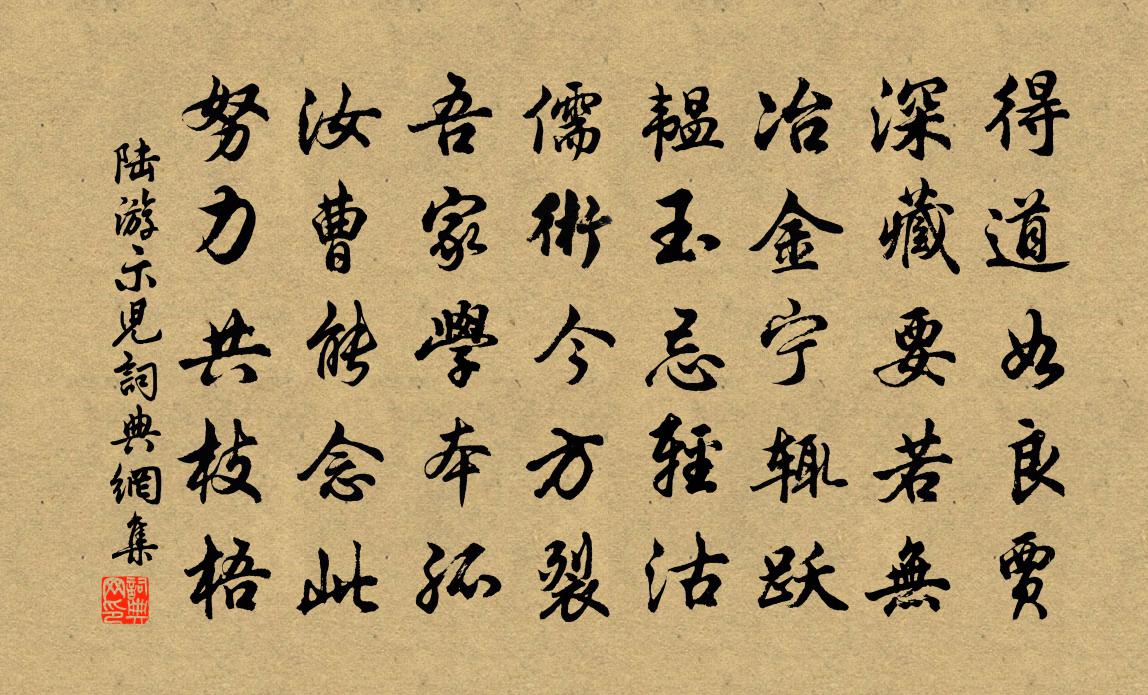 得道如良賈
深藏要若無
冶金宁輒跃
韞玉忌輕沽
儒術今方裂
吾家學本孤
汝曹能念此
努力共枝梧
陆游示兒詞典網集
詞典网印